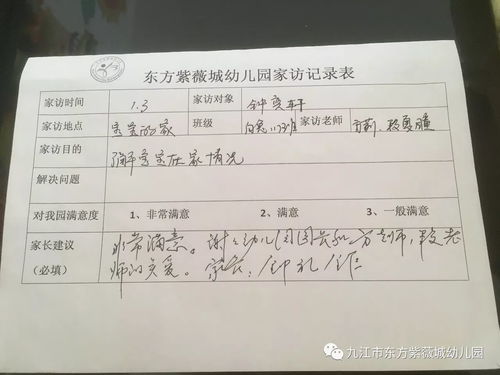 东方紫薇城幼儿园家访记录表
家访时间 1.3 家访对象 钟奕轩
家访地点 宝宝的家 班级 家访老师
家访目的 了解宝宝在家情况
解决问题
对我园满意度 1、非常满意 2、满意 3、一般满意
家长建议 非常满意。谢谢幼儿园园长和方老师,段老
(必填) 师的关爱。家长:钟礼
九江市东方紫薇城幼儿园